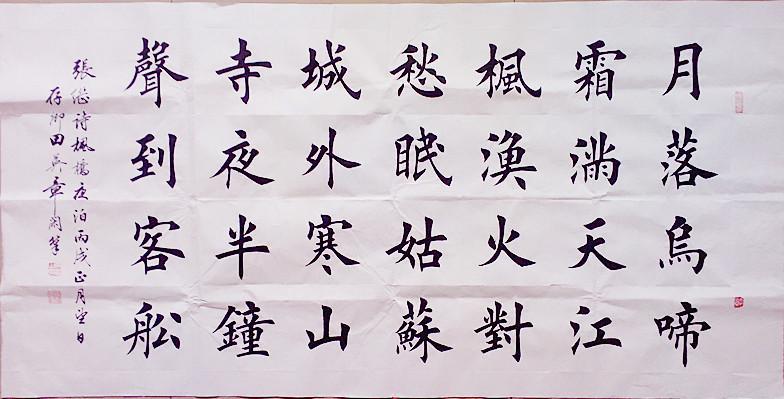 月落烏啼
霜滿天江
楓漁火對
愁眠姑蘇
城外寒山
寺夜半鐘
聲到客舩
張継诗楓橋夜泊丙戌正月望日
田英章